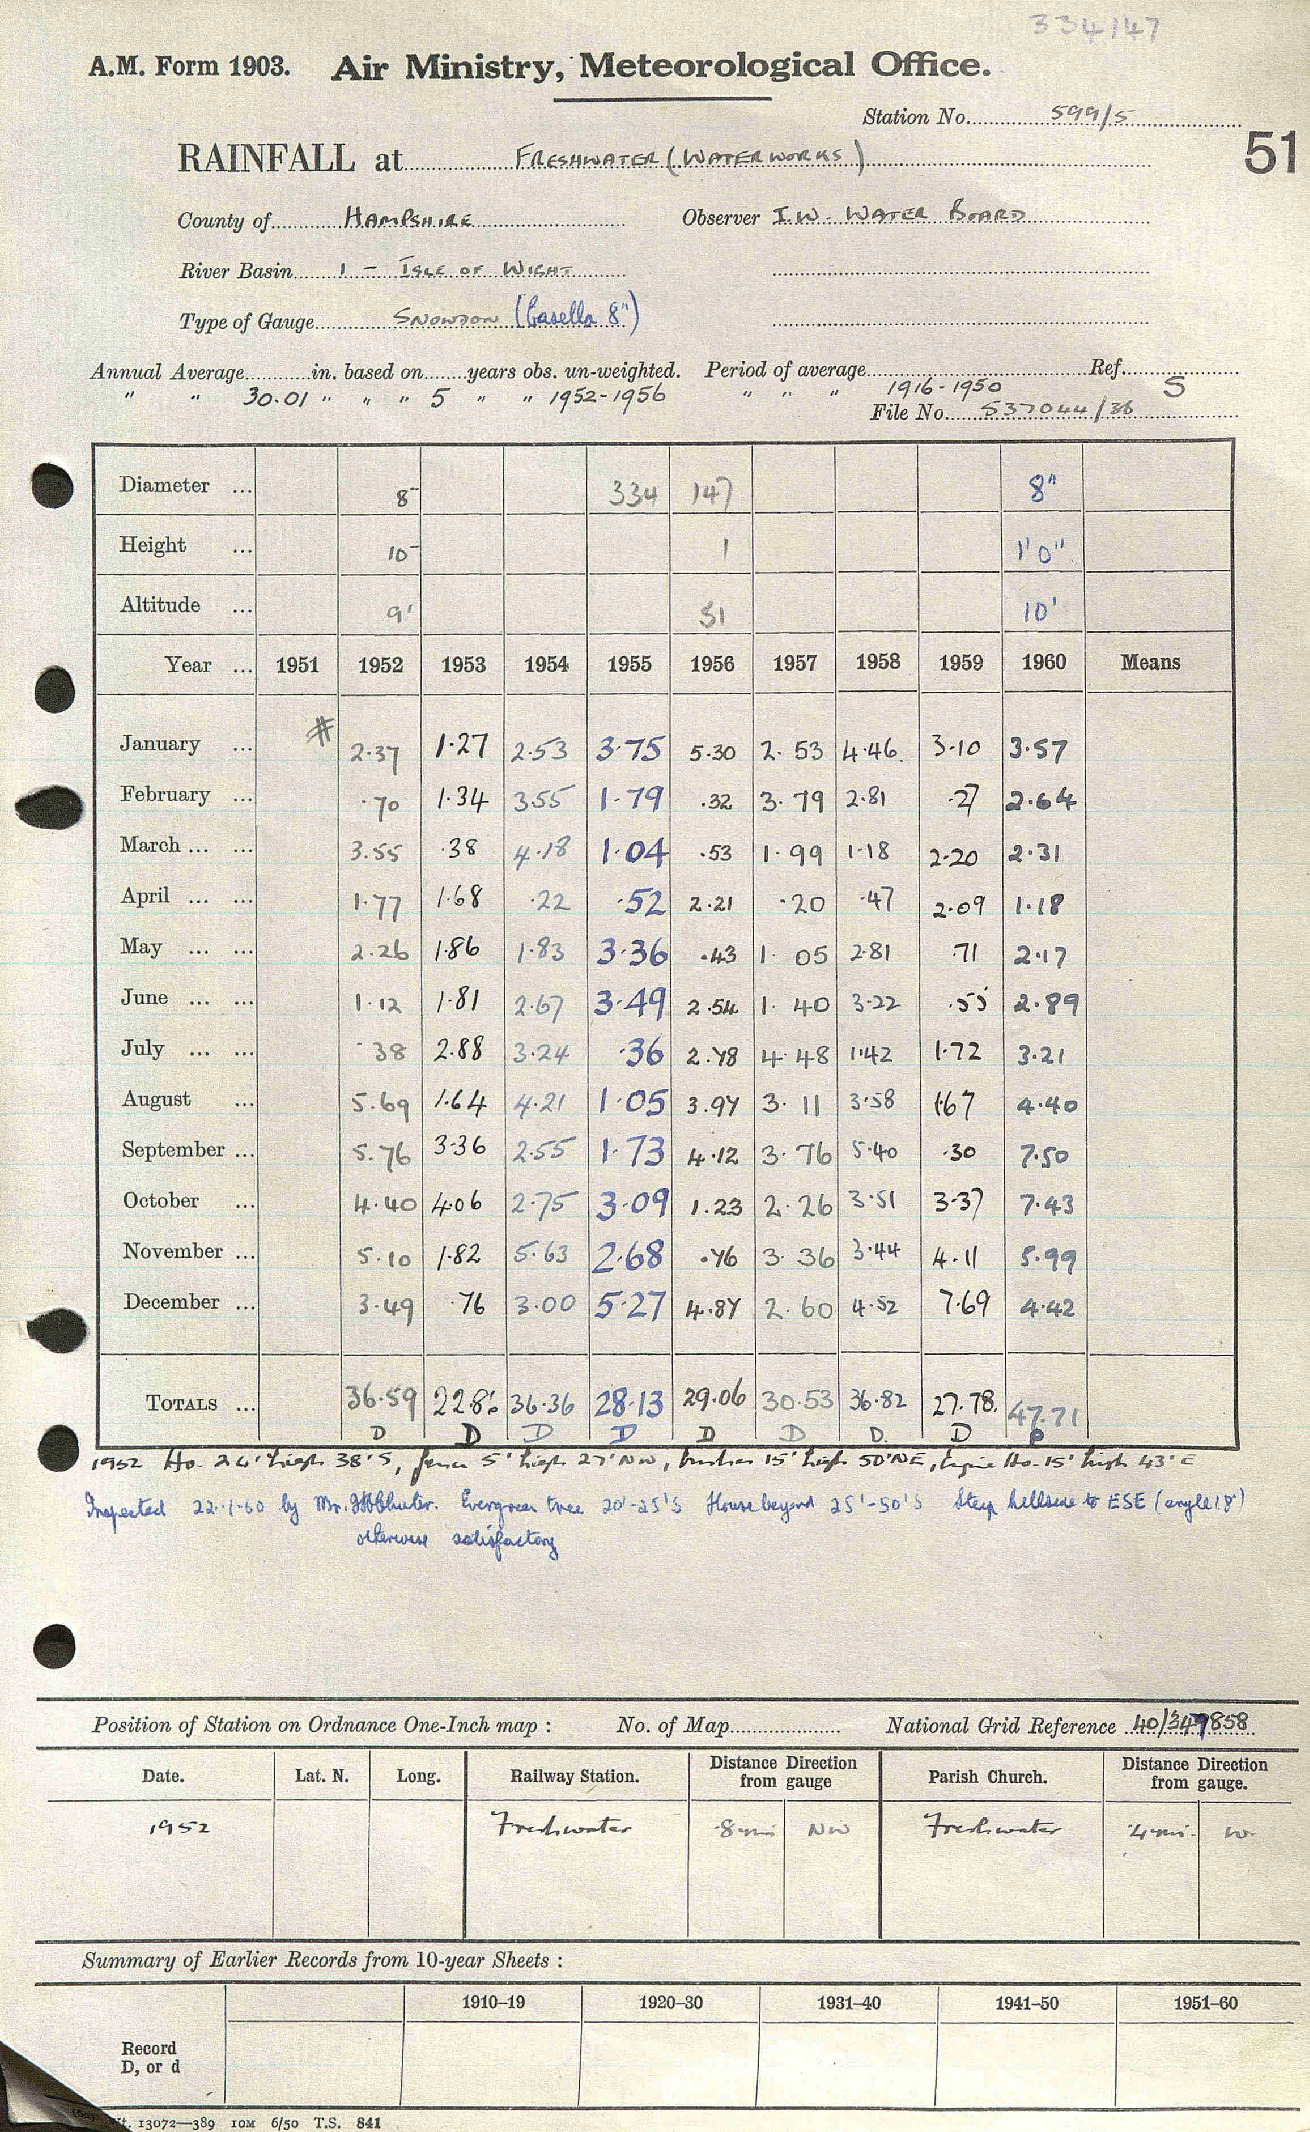 334/147
A.M. Form 1903. Air Ministry, Meteorological Office.
Station No. 599/5
51
RAINFALL at FRESHWATER (WATERWORKS)
County of HAMPSHIRE Observer I.W. WATER BOARD
River Basin 1 - ISLE OF WIGHT
Type of Gauge SNOWDON (Casella 8")
Annual Average in. based on years obs. un-weighted. Period of average Ref.
" " 30.01 " " " 5 " " 1952-1956 " " " 1916-1950 S
File No. 537044/36
Diameter ... 8" 334 147 8"
Height ... 10" 1 1'0"
Altitude ... 9' 31 10'
Year ... 1951 1952 1953 1954 1955 1956 1957 1958 1959 1960 Means
January ... # 2.37 1.27 2.53 3.75 5.30 2.53 4.46 3.10 3.57
February ... .70 1.34 3.55 1.79 .32 3.79 2.81 .27 2.64
March ... ... 3.55 .38 4.18 1.04 .53 1.99 1.18 2.20 2.31
April ... ... 1.77 1.68 .22 .52 2.21 .20 .47 2.09 1.18
May ... ... 2.26 1.86 1.83 3.36 .43 1.05 2.81 .71 2.17
June ... ... 1.12 1.81 2.67 3.49 2.54 1.40 3.22 .55 2.89
July ... ... .38 2.88 3.24 .36 2.78 4.48 1.42 1.72 3.21
August ... 5.69 1.64 4.21 1.05 3.97 3.11 3.58 1.67 4.40
September ... 5.76 3.36 2.55 1.73 4.12 3.76 5.40 .30 7.50
October ... 4.40 4.06 2.75 3.09 1.23 2.26 3.51 3.37 7.43
November ... 5.10 1.82 5.63 2.68 .76 3.36 3.44 4.11 5.99
December ... 3.49 .76 3.00 5.27 4.87 2.60 4.52 7.69 4.42
TOTALS ... 36.59 22.86 36.36 28.13 29.06 30.53 36.82 27.78 47.71
D D D D D D D. D D
1952 Ho. 24' high 38' S, fence 5' high 27' NW, bushes 15' high 50' NE, Engine Ho. 15' high 43' E
Inspected 22.1.60 by Mr. Evergreen tree 20'-25'S House beyond 25'-50'S Steep hillside to ESE (angle 18°)
otherwise satisfactory
Position of Station on Ordnance One-Inch map : No. of Map National Grid Reference 40/347858
Date. Lat. N. Long. Railway Station. Distance from Direction gauge Parish Church. Distance from Direction gauge.
1952 Freshwater .8 mi NW Freshwater .4 mi. W.
Summary of Earlier Records from 10-year Sheets :
1910–19 1920–30 1931–40 1941–50 1951–60
Record
D, or d
13072—389 10M 6/50 T.S. 841